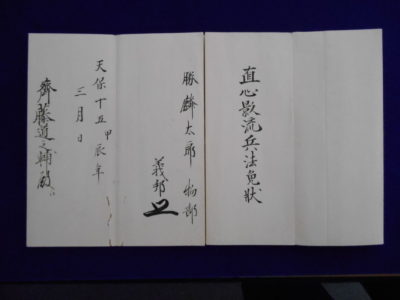 直心影流兵法免状
勝麟太郎 物部
義邦
天保十五甲辰年
三月日
齊藤道之輔殿